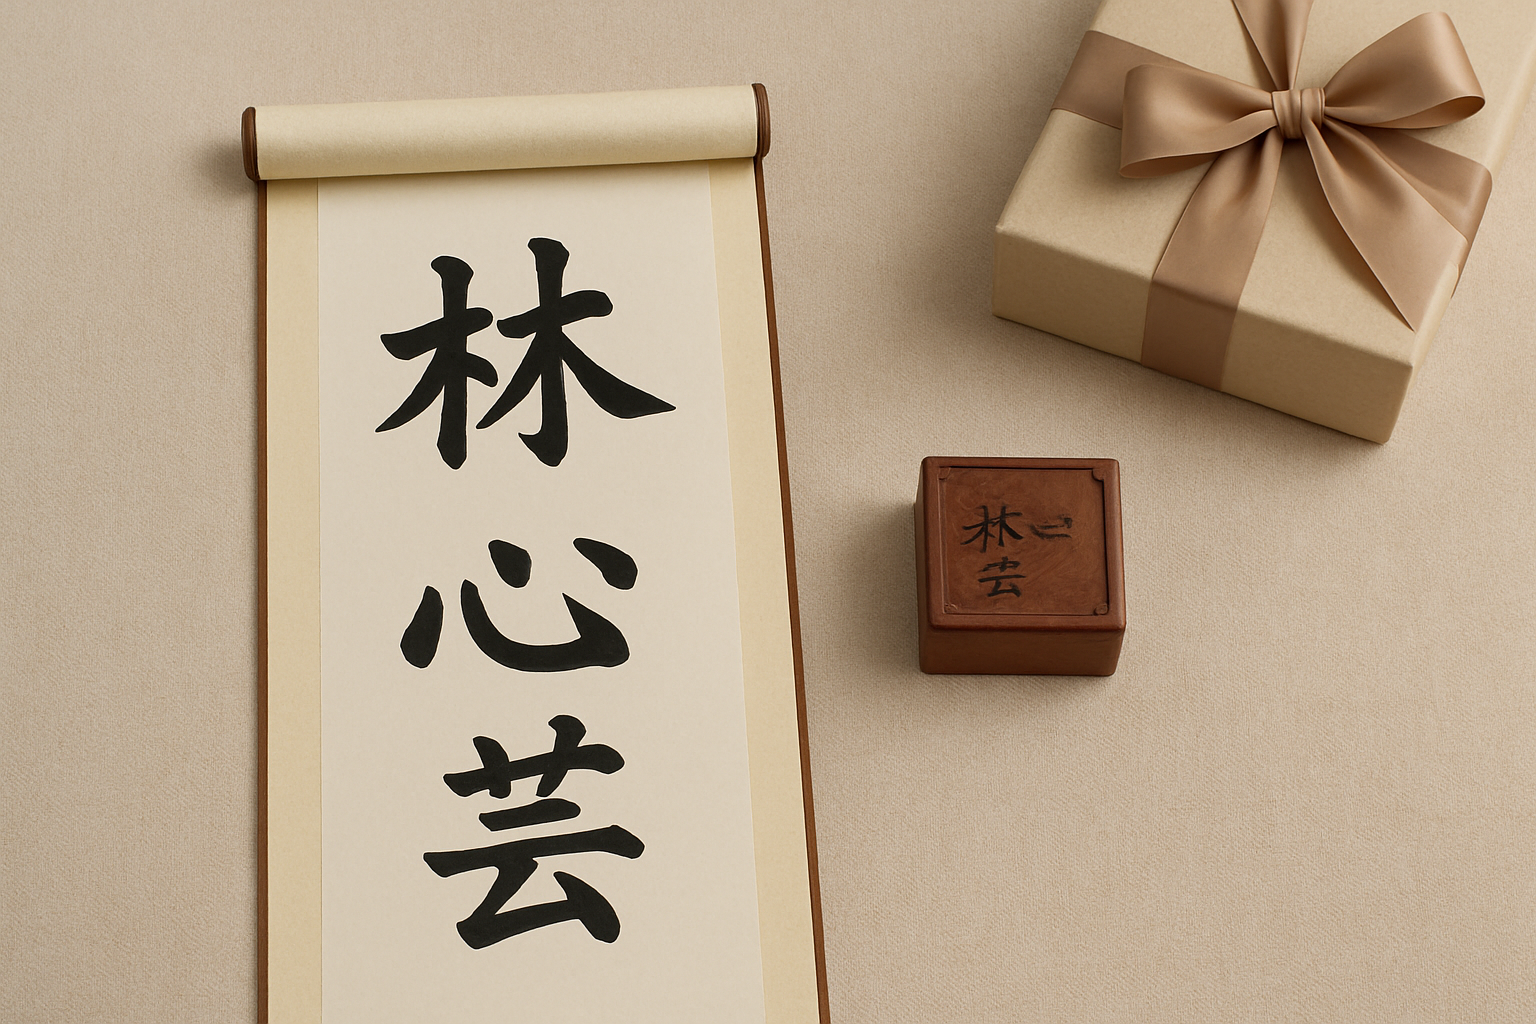 林心芸
林